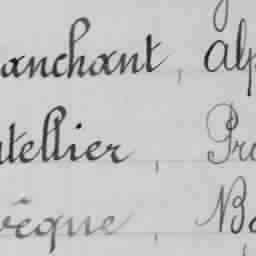 anchant, Alp
tellier, Pro
vêque, Ba